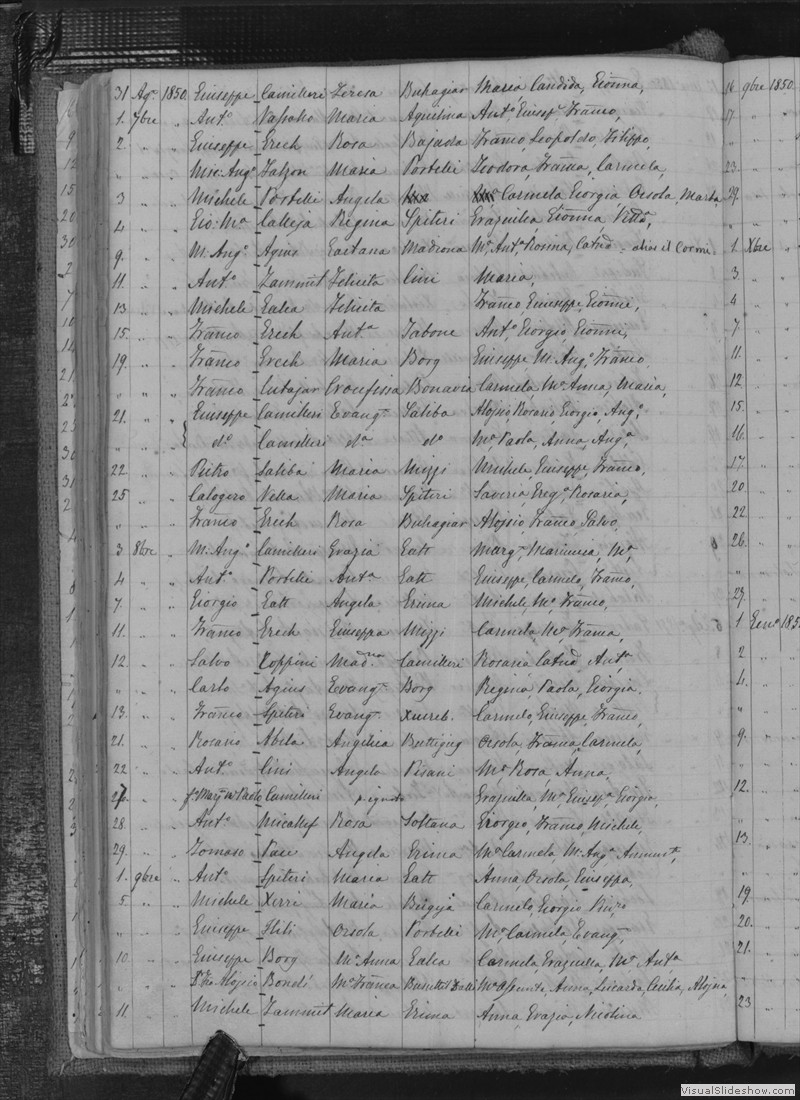 31 Ag.o 1850 Giuseppe Camilleri Teresa Buhagiar Maria Candida, Gionna,
1. 7bre " Ant.o Vassallo Maria Agostina Ant.o Gius.e Franco,
2. " " Giuseppe Grech Rosa Bajada Franco Leopoldo, Filippo,
" " " Mic: Ang.o Falzon Maria Portelli Teodora, Franca, Carmela,
3 " " Michele Portelli Angela Carmela Giorgia Orsola Marta
4 " " Gio: M.a Calleja Regina Spiteri Graziella Gionna Vitt.a,
9. " " M. Ang.o Agius Gaetana Madiona M.a Ant.a Rosina, Catnd - alias il Cormi
11. " " Ant.o Zammit Felicita Cini Maria,
13 " " Michele Galea Felicita Franco, Giuseppe, Gionni,
15. " " Franco Grech Ant.a Tabone Ant.o Giorgio Gionni,
19. " " Franco Grech Maria Borg Giuseppe M. Ang.o Franco
" " " Franco Cutajar Crocifissa Bonavia Carmela, M.a Anna, Maria,
21. " " Giuseppe Camilleri Evang.a Saliba Alojsio, Rosario, Giorgio, Ang.o,
" " " d.o Camilleri d.a d.o M.a Paola, Anna, Ang.a,
22 " " Pietro Saliba Maria Mizzi Michele, Giuseppe, Franco,
25 " " Calogero Vella Maria Spiteri Saveria, Greg.a, Rosaria,
" " " Franco Grech Rosa Buhagiar Alojsio, Franco, Salvo,
3 8bre " M. Ang.o Camilleri Grazia Gatt Marg.a, Marinucia, M.a,
4 " " Ant.o Portelli Ant.a Gatt Giuseppe, Carmelo, Franco,
7. " " Giorgio Gatt Angela Grima Michele, M.o, Franco,
11. " " Franco Grech Giuseppa Mizzi Carmela, M.a, Franca,
12. " " Salvo Coppini Mad.na Camilleri Rosaria Catnd, Ant.a
" " " Carlo Agius Evang.a Borg Regina, Paola, Giorgia.
13. " " Franco Spiteri Evang.a Xuereb. Carmelo, Giuseppe, Franco,
21. " " Rosario Abela Angelica Buttigieg Orsola, Franca, Carmela,
22 " " Ant.o Cini Angela Pisani M.a Rosa Anna,
27. " " Paolo Camilleri ignota Graziella, M.a Gius.a, Giorgia,
28. " " Ant.o Micallef Rosa Soltana Giorgio, Franco, Michele,
29. " " Tomaso Pace Angela Grima M.a Carmela, M. Ang.a Annunt.a,
1. 9bre " Ant.o Spiteri Maria Gatt Anna, Orsola, Giuseppa,
5 " " Michele Xerri Maria Bugeja Carmelo, Giorgio
" " " Giuseppe Hili Orsola Portelli M.a, Carmela, Evang.a,
10. " " Giuseppe Borg M.a Anna Galea Carmela, Graziella, M.a Ant.a
Alojsio Bondi M.a Franca M.a Assunta, Anna, Luicarda, Cecilia, Alojsia,
11 " " Michele Zammit Maria Grima Anna, Grazia, Nicolina
16 9bre 1850.
17. " "
" " "
23. " "
29. " "
" " "
1. Xbre "
3. " "
4 " "
7 " "
11. " "
12 " "
15. " "
16. " "
17 " "
20 " "
22 " "
26. " "
" " "
27. " "
1 Gen.o 185
2 " "
4. " "
" " "
9. " "
" " "
12. " "
13. " "
19. " "
20. " "
21. " "
23 " "
VisualSlideshow.com